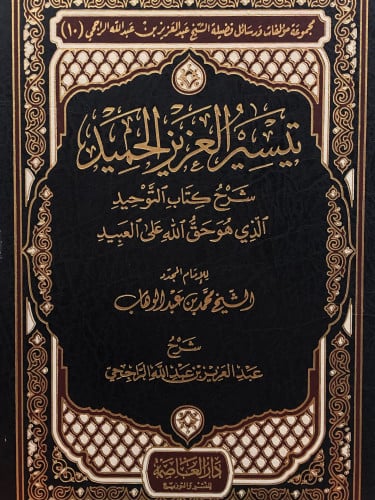 مجموعة مؤلفات ورسائل فضيلة الشيخ عبد العزيز بن عبد الله الراجحي (١٠)
تيسير العزيز الحميد
شرح كتاب التوحيد
الذي هو حق الله على العبيد
للإمام المجدد
الشيخ محمد بن عبد الوهاب
شرح
عبد العزيز بن عبد الله الراجحي
دار العاصمة
للنشر والتوزيع